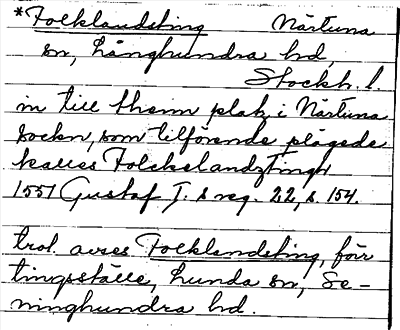 *Folklandsting Närtuna
sn, Långhundra hd,
Stockh. l.
in till them platz i Närtuna
sockn, som tilförende plägede
kalles Folckelandztingh
1551 Gustaf I. s reg. 22, s. 154.
trol. avses Folklandsting, för
tingsställe, Lunda sn, Se-
minghundra hd.